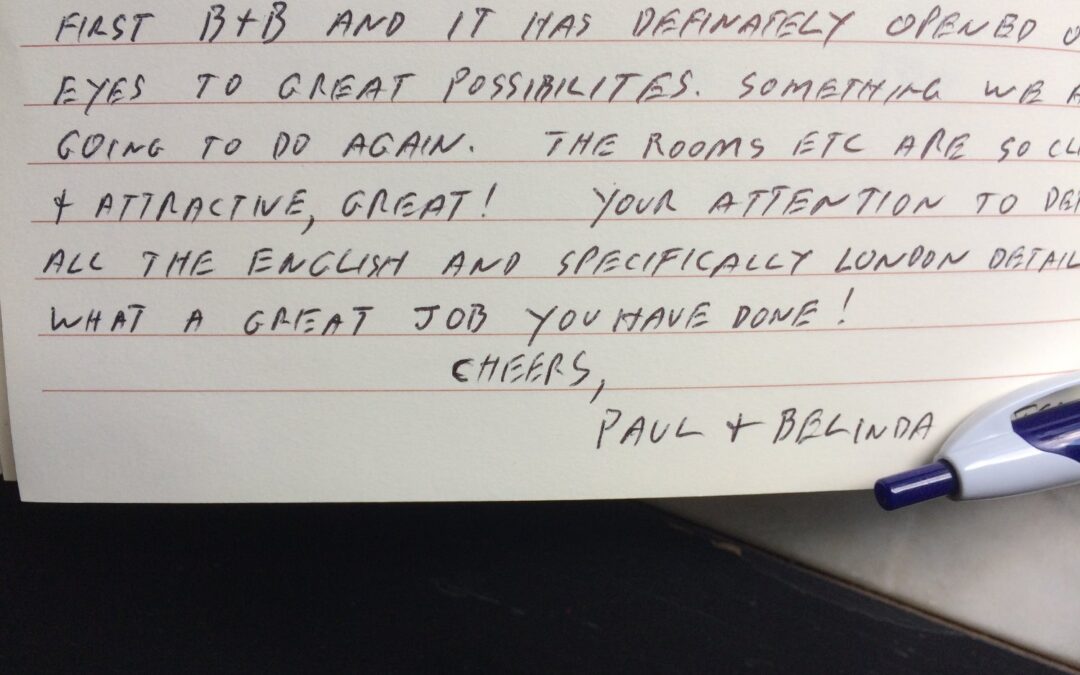 FIRST B+B AND IT HAS DEFINATELY OPENED O
EYES TO GREAT POSSIBILITES. SOMETHING WE A
GOING TO DO AGAIN. THE ROOMS ETC ARE SO CLE
+ ATTRACTIVE, GREAT! YOUR ATTENTION TO DET
ALL THE ENGLISH AND SPECIFICALLY LONDON DETAIL
WHAT A GREAT JOB YOU HAVE DONE!
CHEERS,
PAUL + BELINDA